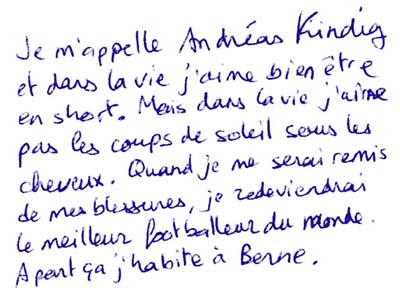 Je m'appelle Andréas Kindig
et dans la vie j'aime bien être
en short. Mais dans la vie j'aime
pas les coups de soleil sous les
cheveux. Quand je me serai remis
de mes blessures, je redeviendrai
le meilleur footballeur du monde.
A part ça j'habite à Berne.